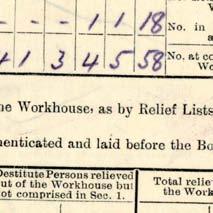 - - - - 1 1 18
No. in
41 3 4 5 58
No. at co
ne Workhouse, as by Relief Lists
henticated and laid before the Bo
Destitute Persons relieved
out of the Workhouse but
not comprised in Sec. 1.
Total relie
the Work